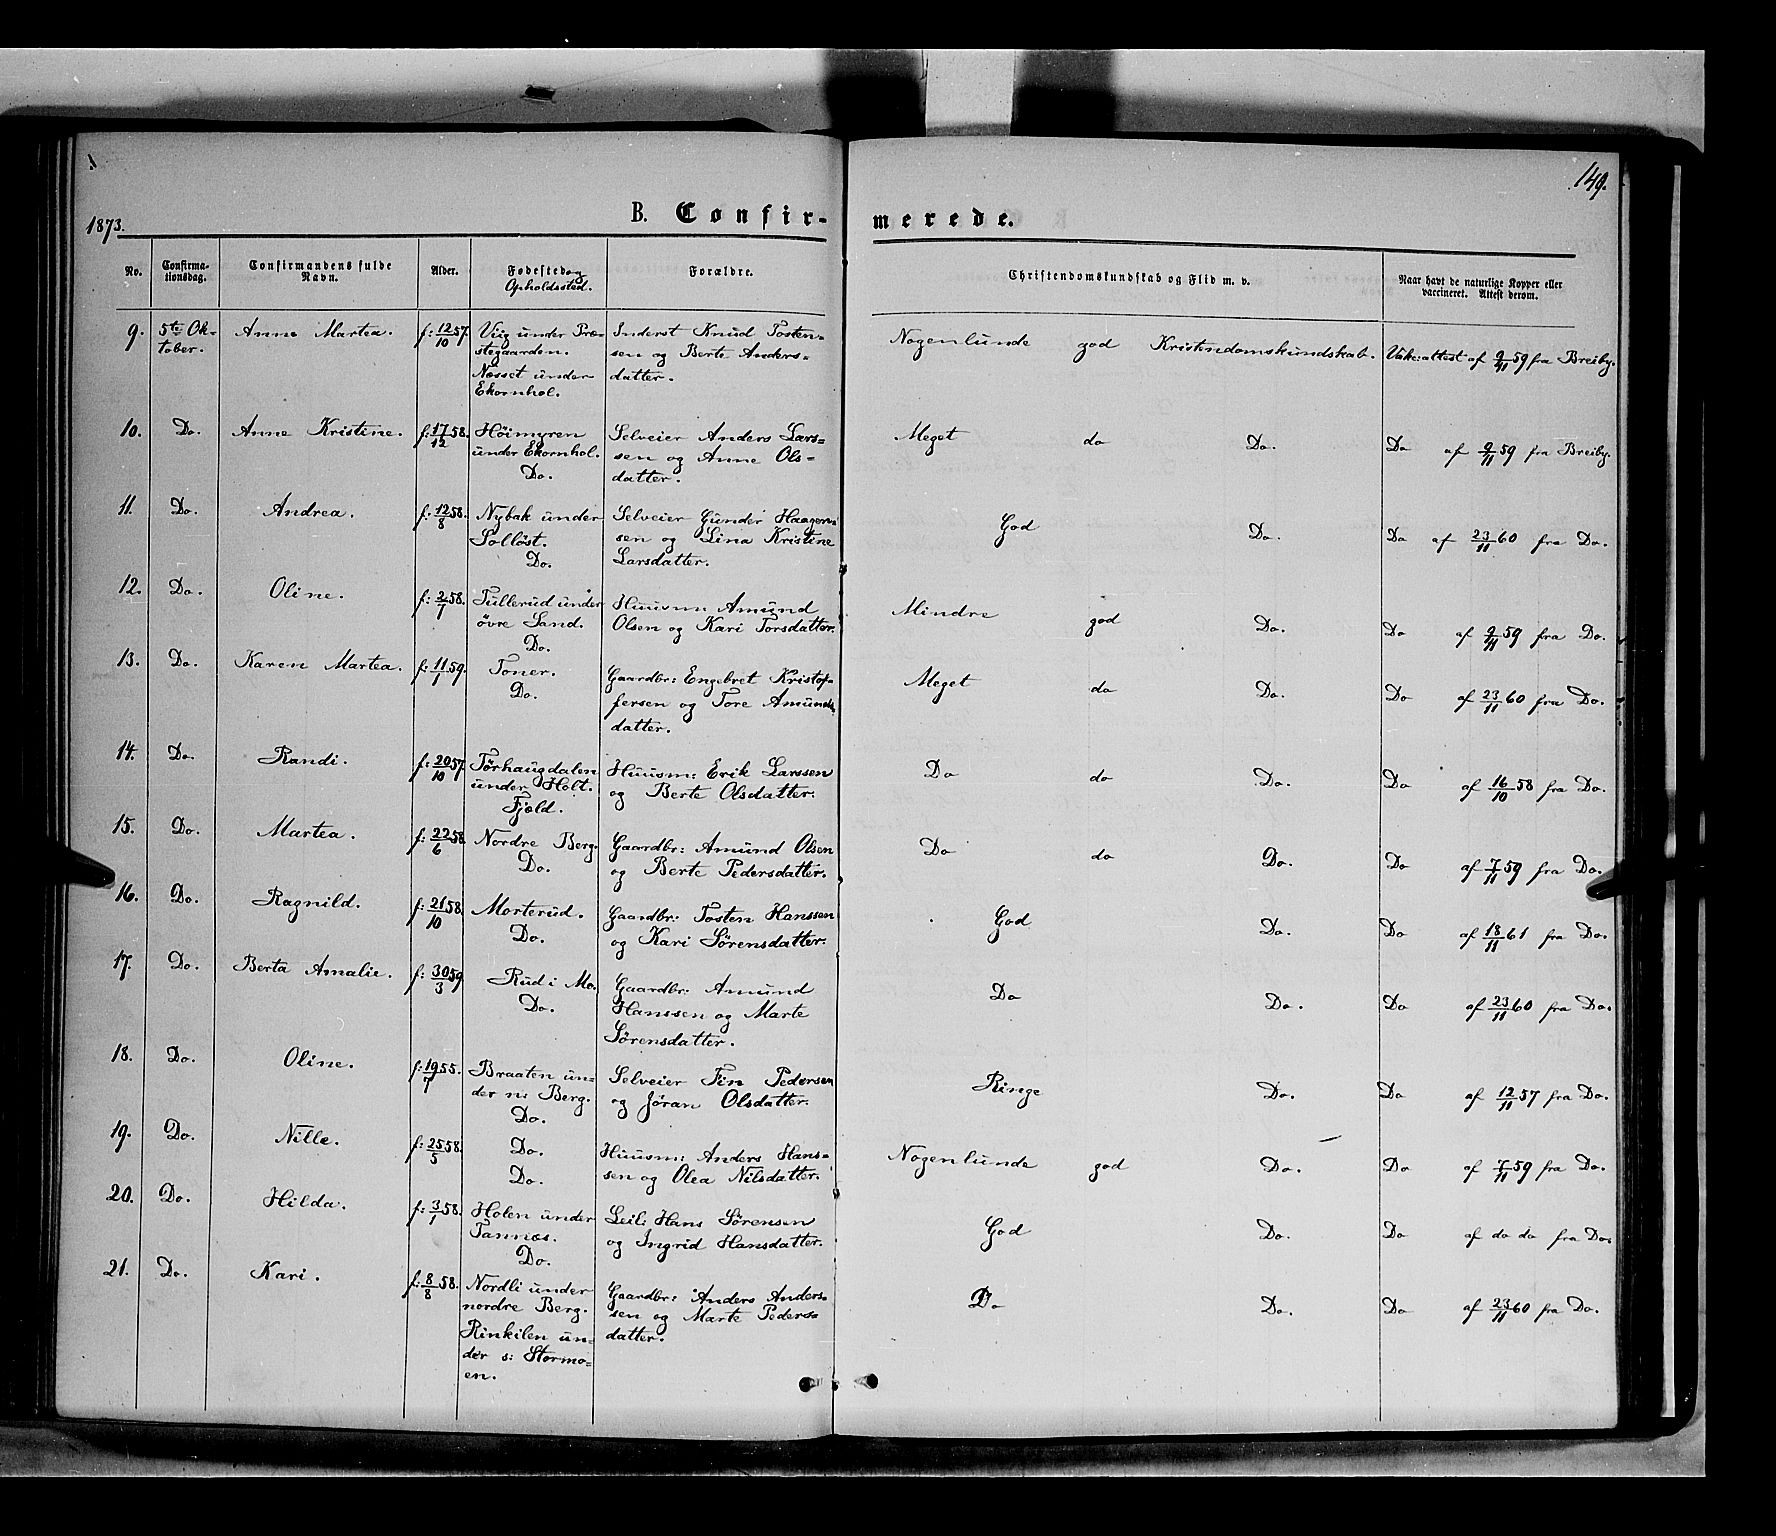 149.
1873.
B. Confir-
merede.
No.
Confirma-
tionsdag.
Confirmandens fulde
Navn.
Alder.
Fødested og
Opholdssted.
Forældre.
Christendomskundskab og Flid m. v.
Naar havt de naturlige Kopper eller
vaccineret. Attest derom.
9. 5te Ok-
tober. Anne Martea. f: 12/10 57. Viig under Præ-
stegaarden.
Næsset under
Ekornhol. Inderst Knud Tosten-
sen og Berte Anders-
datter. Nogenlunde god Kristendomskundskab. Vak: attest af 9/11 59 fra Breiby.
10. Do. Anne Kristine. f: 17/12 58. Höimyren
under Ekornhol.
Do. Selveier Anders Lars-
sen og Anne Ols-
datter. Meget do Do. Do af 9/11 59 fra Breiby.
11. Do. Andrea. f: 12/8 58. Nybak under
Solløst.
Do. Selveier Gunder Haagen-
sen og Lina Kristine
Larsdatter. God Do. Do af 23/11 60 fra Do.
12. Do. Oline. f: 2/1 58. Tullerud under
övre Sand.
Do. Huusm: Amund
Olsen og Kari Torsdatter. Mindre god Do. Do af 9/11 59 fra Do.
13. Do. Karen Martea. f: 11/1 59. Toner.
Do. Gaardbr: Engebret Kristof-
fersen og Tore Amunds-
datter. Meget do Do. Do af 23/11 60 fra Do.
14. Do. Randi. f: 20/10 57. Törhaugdalen
under Holt.
Fjeld. Huusm: Erik Larssen
og Berte Olsdatter. Do do Do. Do af 16/10 58 fra Do.
15. Do. Martea. f: 22/6 58. Nordre Berg.
Do. Gaardbr: Amund Olsen
og Berte Pedersdatter. Do do Do. Do af 7/11 59 fra Do.
16. Do. Ragnild. f: 21/10 58. Morterud.
Do. Gaardbr: Tosten Hanssen
og Kari Sörensdatter. God Do. Do af 18/11 61 fra Do.
17. Do. Berta Amalie. f: 30/3 59 Rud i Mo.
Do. Gaardbr: Amund
Hanssen og Marte
Sörensdatter. Do Do. Do af 23/11 60 fra Do.
18. Do. Oline. f: 19/7 55. Braaten un-
der n: Berg.
Do. Selveier Fin Pedersen
og Jöran Olsdatter. Ringe Do. Do af 12/11 57 fra Do.
19. Do. Nille. f: 25/5 58. Do.
Do. Huusm: Anders Hans-
sen og Olea Nilsdatter. Nogenlunde god Do. Do af 7/11 59 fra Do.
20. Do. Hilda. f: 3/1 58. Holen under
Tannæs.
Do. Leil: Hans Sörensen
og Ingrid Hansdatter. God Do. Do af do do fra Do.
21. Do. Kari. f: 8/8 58. Nordli under
nordre Berg.
Rinkilen un-
der s: Stormo-
en. Gaardbr: Anders Anders-
sen og Marte Peders-
datter. Do Do. Do af 23/11 60 fra Do.